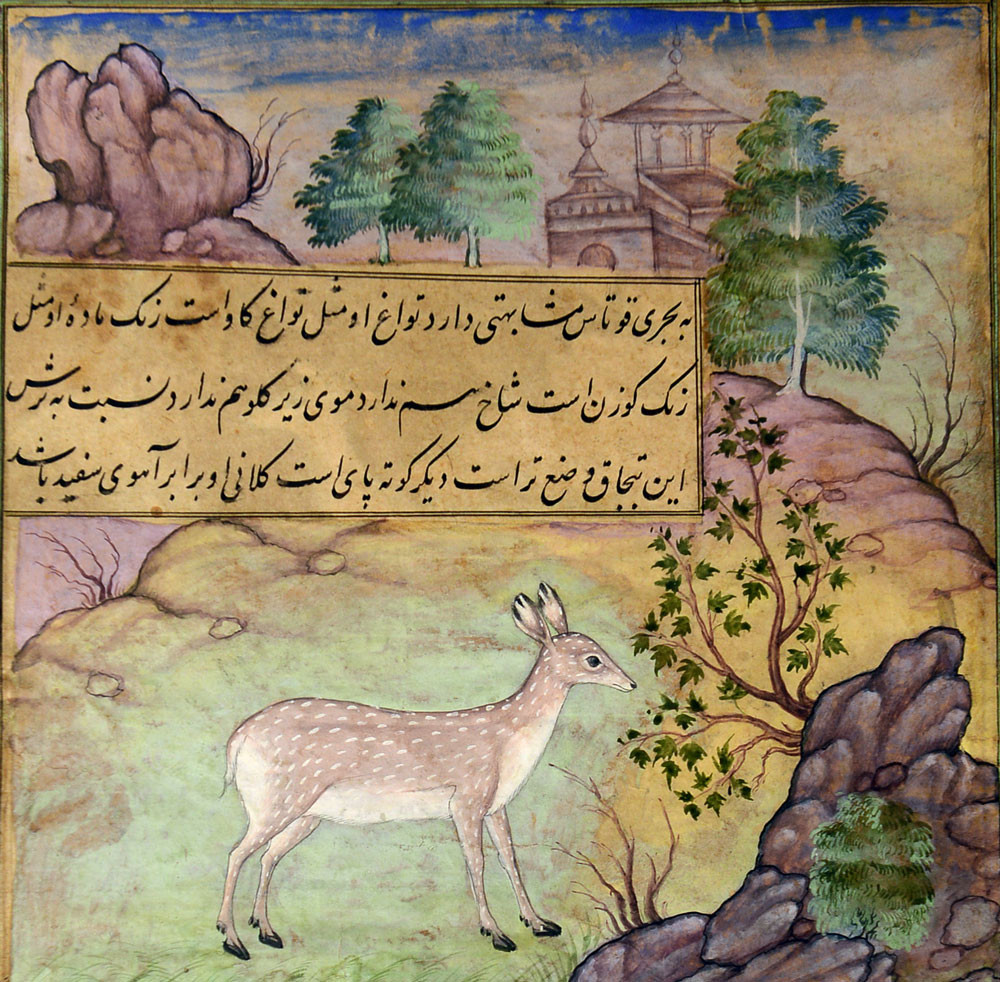 به بحری قوتاس مشابهتی دارد تواغ او مثل تواغ کاو است رنک مادهٔ او مثل
رنک کوزن است شاخ هم ندارد موی زیر کلو هم ندارد نسبت به نرش
این تبحاق وضع تر است دیکر کوته پای است کلانی او برابر آهوی سفید باشد